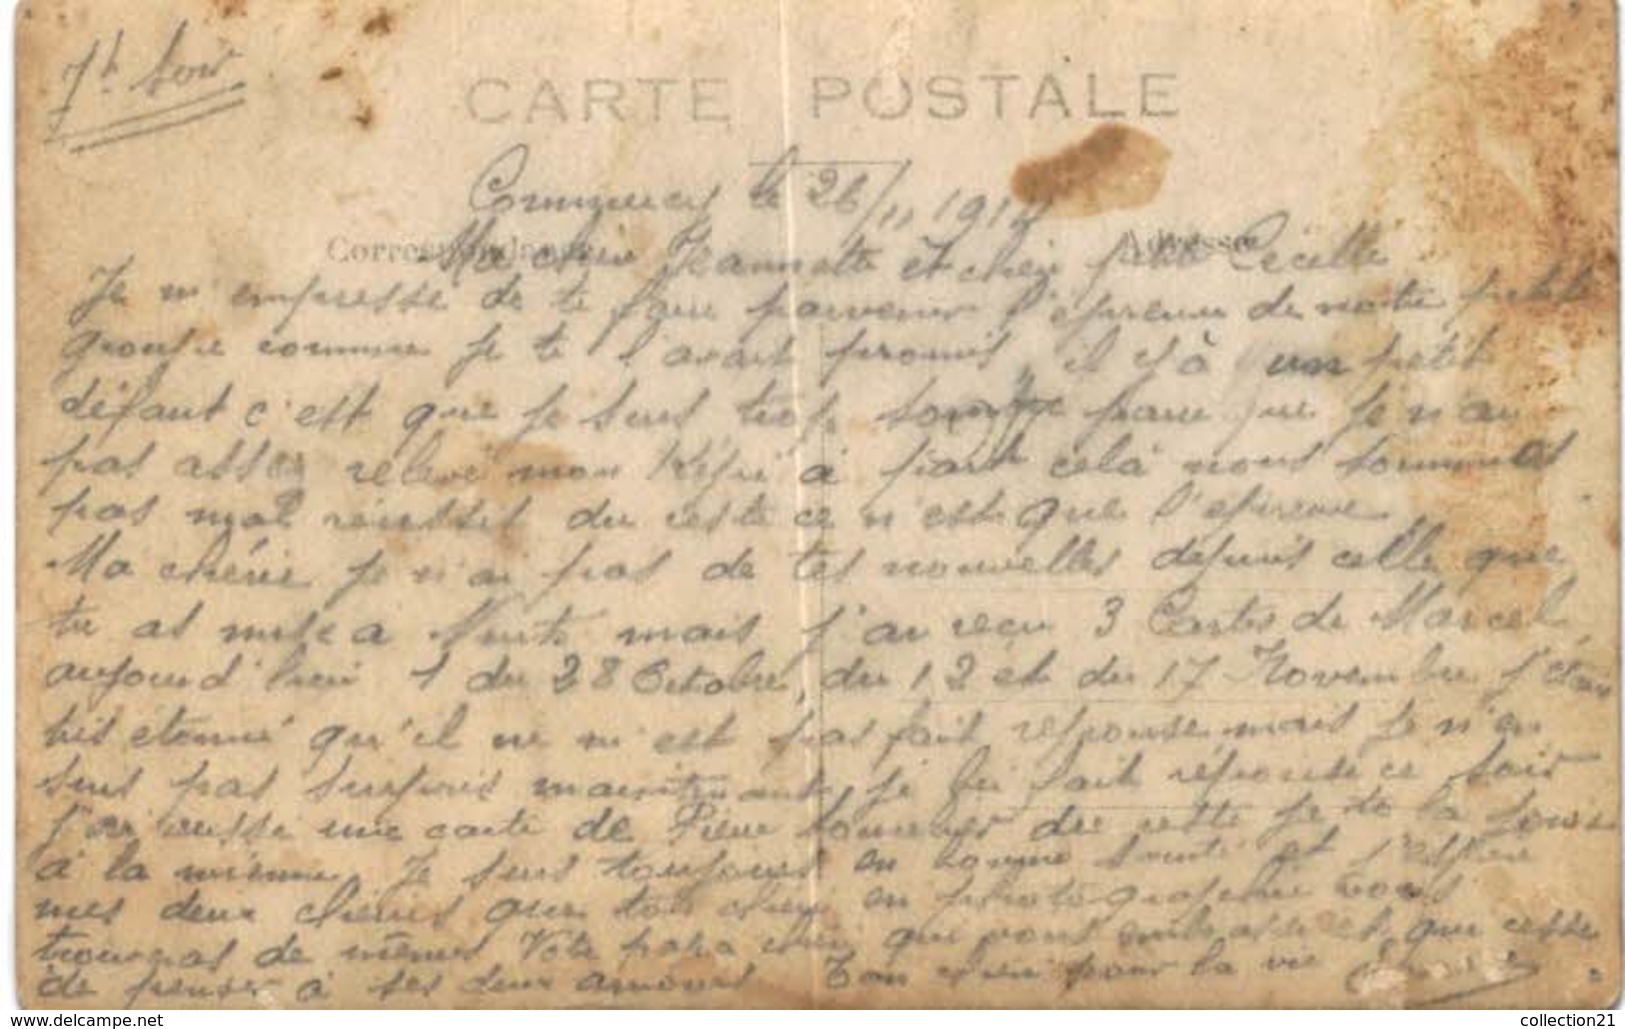 7h Soir
CARTE POSTALE
Commercy le 26/11 1914
Correspondance Adresse
Ma chère Jeannette et chère petite Cécelle
Je m'empresse de te faire parvenir l'épreuve de notre petit
groupe comme je te l'avait promis, il y à un petit
défaut c'est que je suis trop sombre parce que je n'ai
pas assez relevé mon Képi à part celà nous sommes
pas mal réussis du reste ce n'est que l'épreuve
Ma chérie je n'ai pas de tes nouvelles depuis celle que
tu as mise a Nuits mais j'ai reçu 3 Cartes de Marcel
aujourd'hui 1 du 28 Octobre, du 12 et du 17 Novembre j'étais
très étonné qu'il ne m'est pas fait réponse mais je n'en
suis pas surpris maintenant je lui fait réponse ce soir
j'ai aussi une carte de Pierre du reste je te la joins
à la mienne. Je suis toujours en bonne santé et j'espère
mes deux chéries que ton chéri en photographie vous
trouvera de même Votre papa chéri qui vous embrasse et qui cesse
de penser à ses deux amours Ton chéri pour la vie
collection21